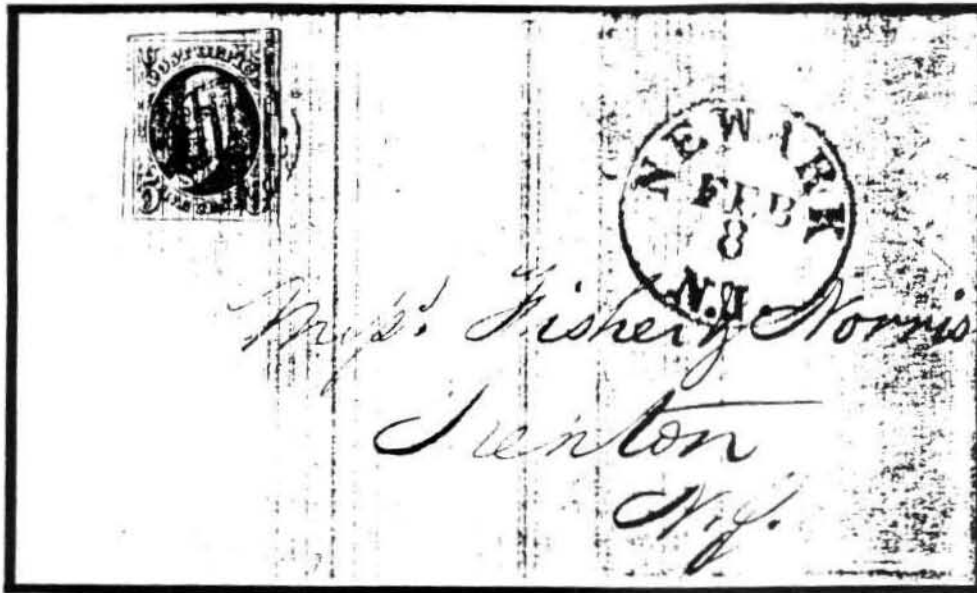 POST OFFICE
NEWARK
FEB
8
N.J.
Mess. Fisher & Norris
Trenton
N.J.